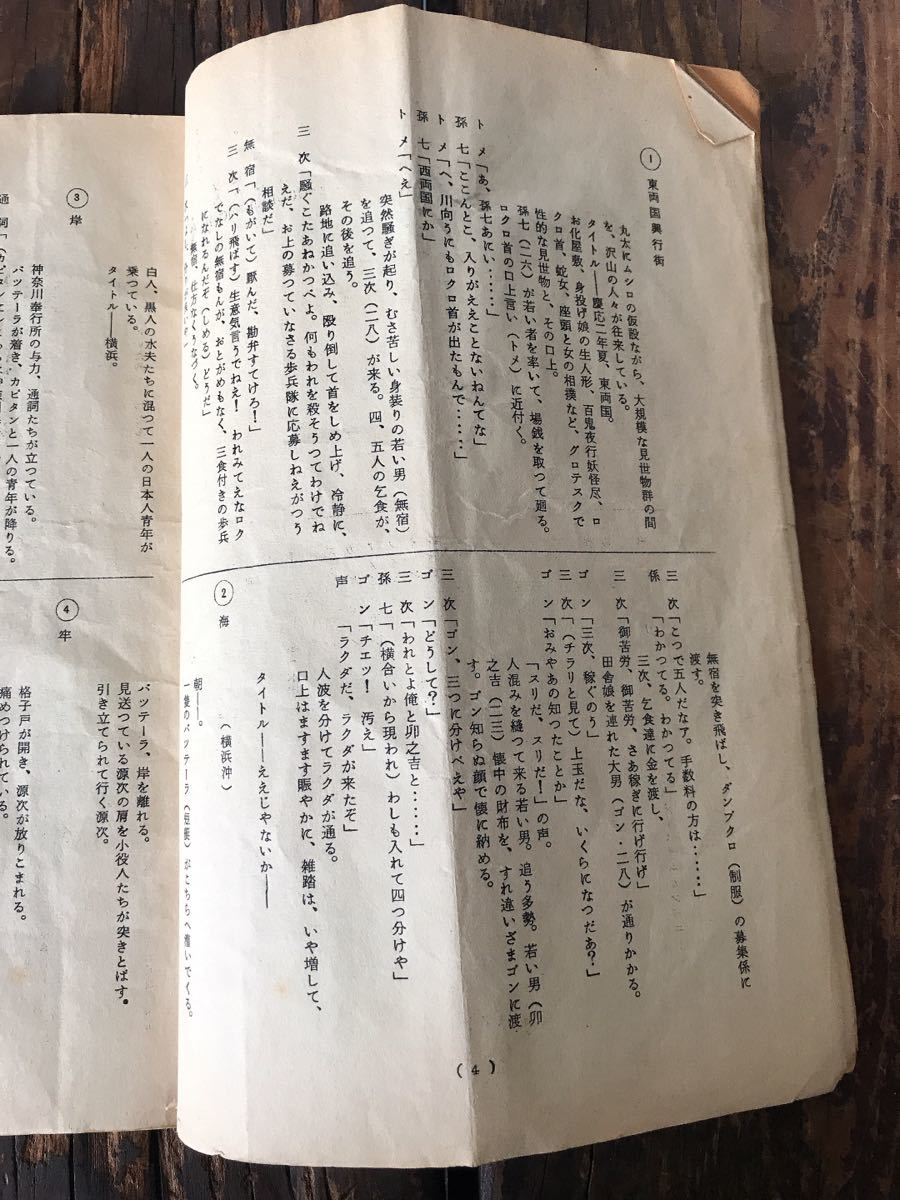 ① 東両国興行街
丸太にムシロの仮設ながら、大規模な見世物群の間
を、沢山の人々が往来している。
タイトル──慶応二年夏、東両国。
お化屋敷、身投げ娘の生人形、百鬼夜行妖怪尽、ロ
クロ首、蛇女、座頭と女の相撲など、グロテスクで
性的な見世物と、その口上。
孫七(二六)が若い者を率いて、場銭を取つて廻る。
ロクロ首の口上言い(トメ)に近付く。
トメ「あ、孫七あにい‥‥‥」
孫七「ここんとこ、入りがええことないねんてな」
トメ「へ、川向うにもロクロ首が出たもんで‥‥‥」
孫七「西両国にか」
トメ「へえ」
突然騒ぎが起り、むさ苦しい身装りの若い男(無宿)
を追つて、三次(二八)が来る。四、五人の乞食が、
その後を追う。
路地に追い込み、殴り倒して首をしめ上げ、冷静に、
三次「騒ぐこたあねかつぺよ。何もわれを殺そうつてわけでね
えだ、お上の募つていなさる歩兵隊に応募しねえがつう
相談だ」
無宿「(もがいて)厭んだ、勘弁すてけろ!」
三次「(ハリ飛ばす)生意気言うでねえ! われみてえなロク
でなしの無宿もんが、おとがめもなく、三食付きの歩兵
になれるんだぞ(しめる)どうだ」
無宿、仕方なくうなづく。
無宿を突き飛ばし、ダンブクロ(制服)の募集係に
渡す。
三次「こつで五人だなア。手数料の方は‥‥‥」
係「わかつてる。わかつてる」
三次、乞食達に金を渡し、
三次「御苦労、御苦労、さあ稼ぎに行げ行げ」
田舎娘を連れた大男(ゴン・二八)が通りかかる。
ゴン「三次、稼ぐのう」
三次「(チラリと見て)上玉だな、いくらになつだあ?」
ゴン「おみやあの知つたことか」
「スリだ、スリだ!」の声。
人混みを縫つて来る若い男。追う多勢。若い男(卯
之吉(二三)懐中の財布を、すれ違いざまゴンに渡
す。ゴン知らぬ顔で懐に納める。
三次「ゴン、三つに分けべえや」
ゴン「どうして?」
三次「われとよ俺と卯之吉と‥‥‥」
孫七「(横合いから現われ)わしも入れて四つ分けや」
ゴン「チエッ! 汚え」
声「ラクダだ、ラクダが来たぞ」
人波を分けてラクダが通る。
口上はますます賑やかに、雑踏は、いや増して、
タイトル──ええじゃないか──
② 海 (横浜沖)
朝──。
一隻のバッテーラ(短艇)がこちらへ漕いでくる。
(4)
白人、黒人の水夫たちに混つて一人の日本人青年が
乗つている。
タイトル──横浜。
③ 岸
神奈川奉行所の与力、通詞たちが立つている。
バッテーラが着き、カピタンと一人の青年が降りる。
バッテーラ、岸を離れる。
見送つている源次の肩を小役人たちが突きとばす。
引き立てられて行く源次。
④ 牢
格子戸が開き、源次が放りこまれる。
痛めつけられている。